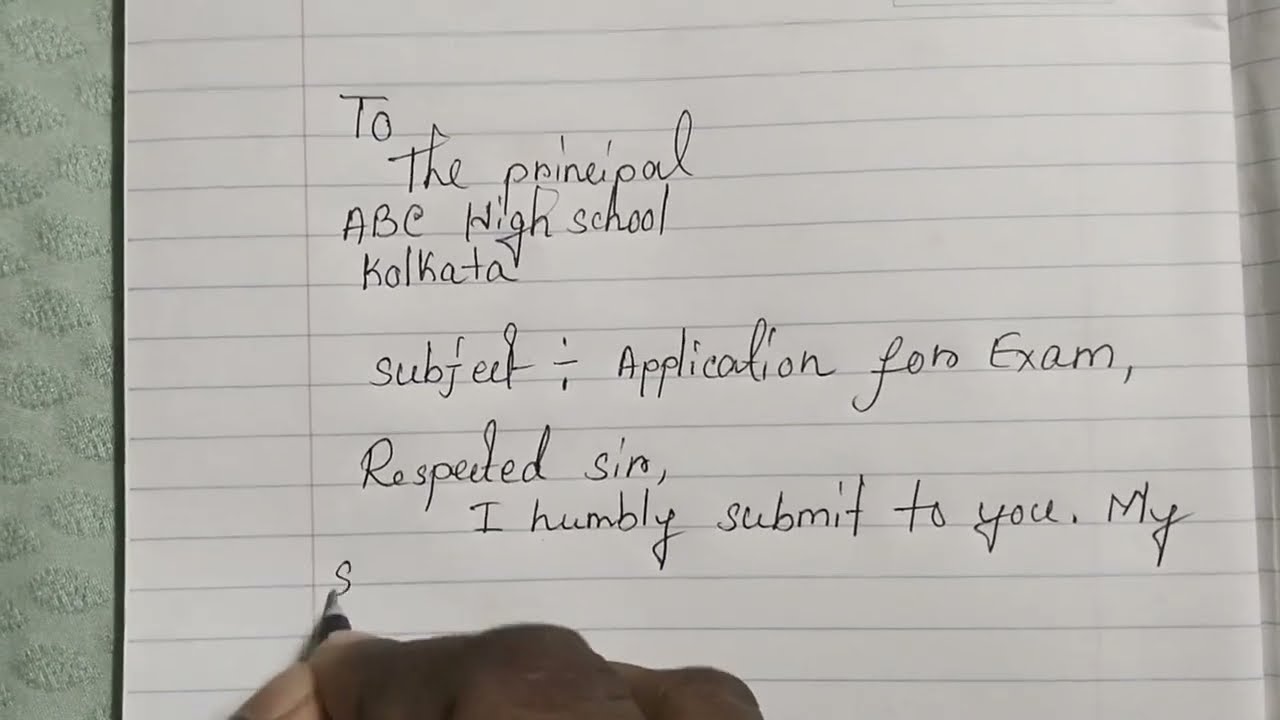 To
The principal
ABC High school
Kolkata
subject ÷ Application for Exam,
Respected sir,
I humbly submit to you. My
s